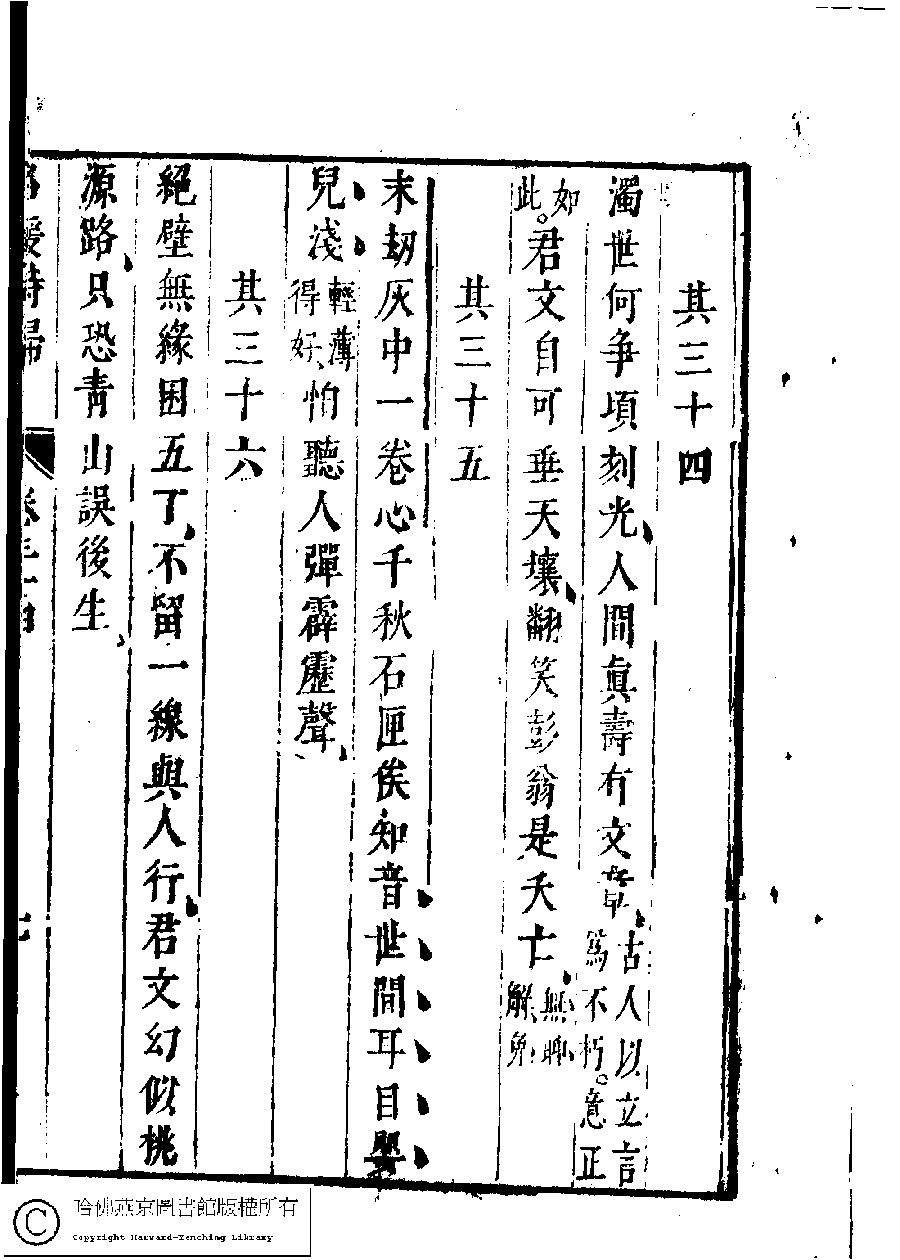 其三十四
濁世何爭頃刻光人間眞壽有文章古人以立言爲不朽。意正
如此。君文自可垂天壤翻笑彭翁是夭亡無聊解免
其三十五
末刼灰中一卷心千秋石匣俟知音世間耳目嬰
兒淺輕薄得好怕聽人彈霹靂聲
其三十六
絕壁無緣困五丁不留一線與人行君文幻似桃
源路只恐靑山誤後生
名媛詩歸
卷三十四
七
哈佛燕京圖書館版權所有
Copyright Harvard-Yenching Library